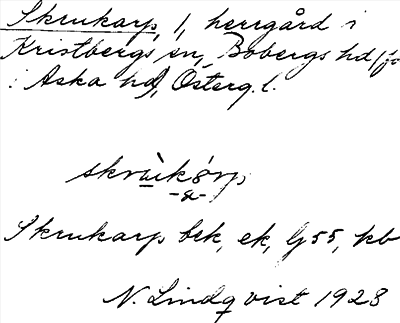 Skrukarp, 1, herrgård i
Kristbergs sn, Bobergs hd, (fö
i Aska hd), Österg. l.
skrùkȯrp
-a-
Skrukarp bek, ek, Gj 55, kb
N. Lindqvist 1928